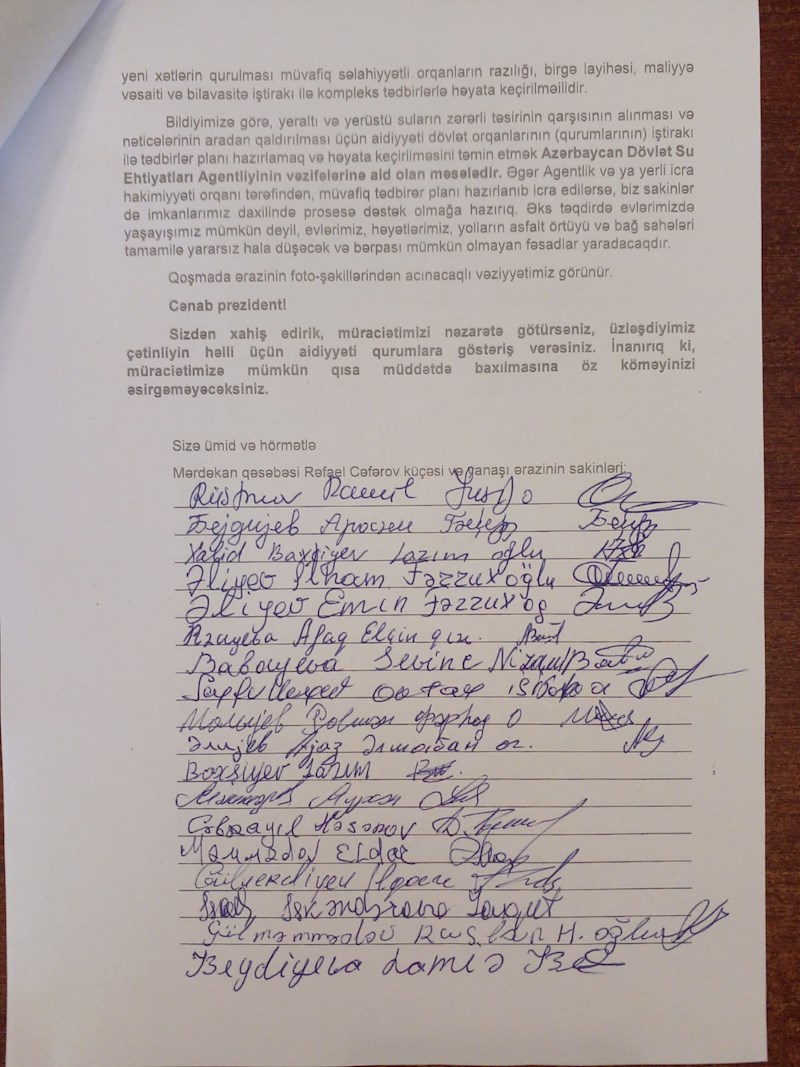 yeni xətlərin qurulması müvafiq səlahiyyətli orqanların razılığı, birgə layihəsi, maliyyə
vəsaiti və bilavasitə iştirakı ilə kompleks tədbirlərlə həyata keçirilməilidir.
Bildiyimizə görə, yeraltı və yerüstü suların zərərli təsirinin qarşısının alınması və
nəticələrinin aradan qaldırılması üçün aidiyyəti dövlət orqanlarının (qurumlarının) iştirakı
ilə tədbirlər planı hazırlamaq və həyata keçirilməsini təmin etmək Azərbaycan Dövlət Su
Ehtiyatları Agentliyinin vəzifələrinə aid olan məsələdir. Əgər Agentlik və ya yerli icra
hakimiyyəti orqanı tərəfindən, müvafiq tədbirər planı hazırlanıb icra edilərsə, biz sakinlər
də imkanlarımız daxilində prosesə dəstək olmağa hazırıq. Əks təqdirdə evlərimizdə
yaşayışımız mümkün deyil, evlərimiz, həyətlərimiz, yolların asfalt örtüyü və bağ sahələri
tamamilə yararsız hala düşəcək və bərpası mümkün olmayan fəsadlar yaradacaqdır.
Qoşmada ərazinin foto-şəkillərindən acınacaqlı vəziyyətimiz görünür.
Cənab prezident!
Sizdən xahiş edirik, müraciətimizi nəzarətə götürsəniz, üzləşdiyimiz
çətinliyin həlli üçün aidiyyəti qurumlara göstəriş verəsiniz. İnanırıq ki,
müraciətimizə mümkün qısa müddətdə baxılmasına öz köməyinizi
əsirgəməyəcəksiniz.
Sizə ümid və hörmətlə
Mərdəkan qəsəbəsi Rəfael Cəfərov küçəsi və yanaşı ərazinin sakinləri:
Ramil
Xalid Baxşiyev Lazım oğlu
Əliyev İlham Fəzzux oğlu
Əliyev Emin Fəzzux og
Rzayeva Afaq Elçin qızı.
Babayeva Sevinc Nizami
Əлијев Ајаз
Baxşiyev Lazım
Cəbrayıl Həsənov
Məmmədov Eldar
İskəndərova Yaqut
Gülməmmədov Ruslan H. oğlu
Beydiyeva Lamiə